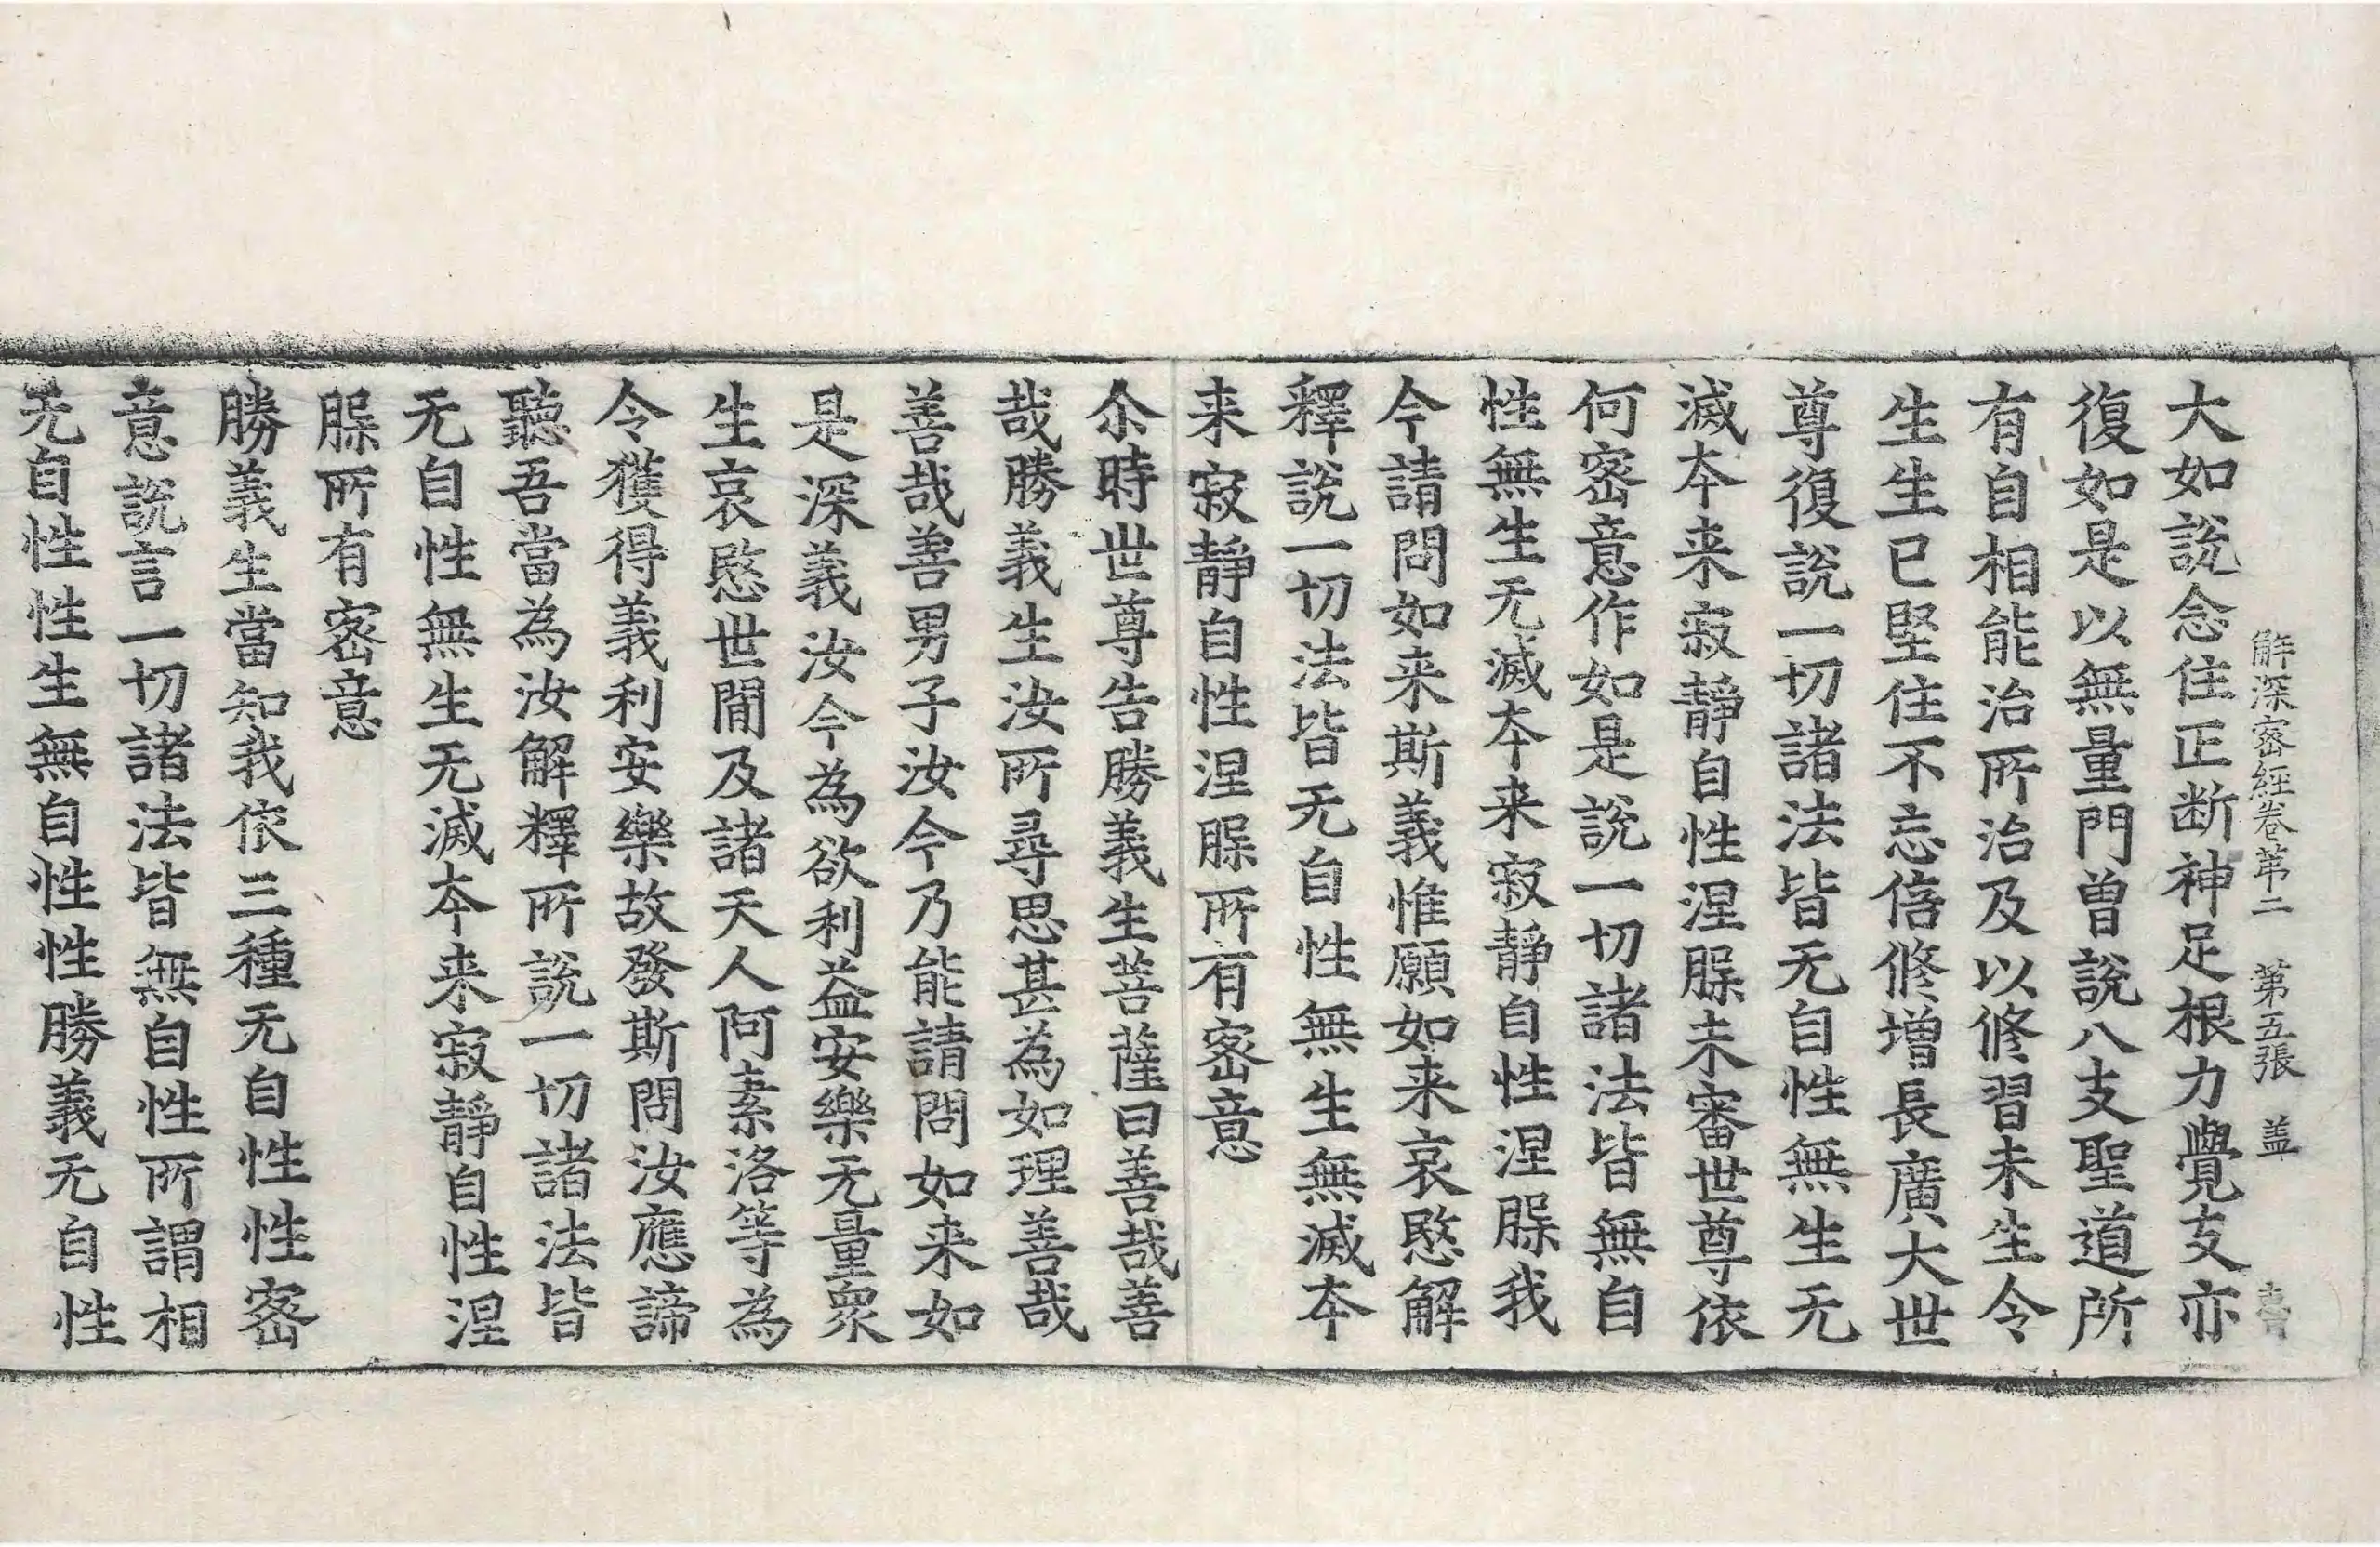 解深密經卷苐二　第五張　盖
大如說念住正断神足根力覺支亦
復如是以無量門曽說八支聖道所
有自相能治所治及以修習未生令
生生已堅住不忘倍修增長廣大世
尊復說一切諸法皆无自性無生无
滅夲来寂靜自性涅槃未審世尊依
何密意作如是說一切諸法皆無自
性無生无滅夲来寂靜自性涅槃我
今請問如来斯義惟願如来哀愍解
釋說一切法皆无自性無生無滅夲
来寂靜自性涅槃所有密意
尒時世尊告勝義生菩薩曰善哉善
哉勝義生汝所尋思甚為如理善哉
善哉善男子汝今乃能請問如来如
是深義汝今為欲利益安樂无量衆
生哀愍世間及諸天人阿素洛等為
令獲得義利安樂故發斯問汝應諦
聽吾當為汝解釋所說一切諸法皆
无自性無生无滅夲来寂靜自性涅
槃所有密意
勝義生當知我依三種无自性性密
意說言一切諸法皆無自性所謂相
无自性性生無自性性勝義无自性